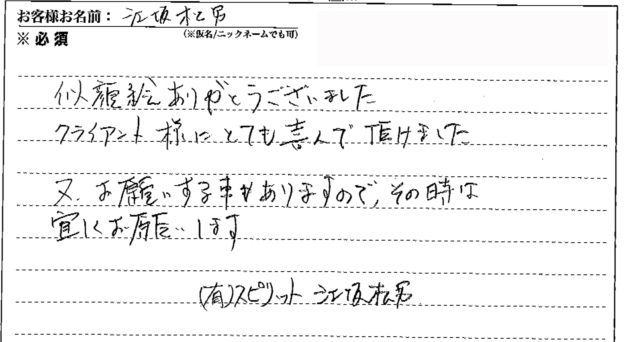 お客様お名前： 江坂松男
※必須
（※仮名/ニックネームでも可）
似顔絵ありがとうございました
クライアント様にとても喜んで頂けました
又、お願いする事がありますので、その時は
宜しくお願いします
(有)スピリット 江坂松男